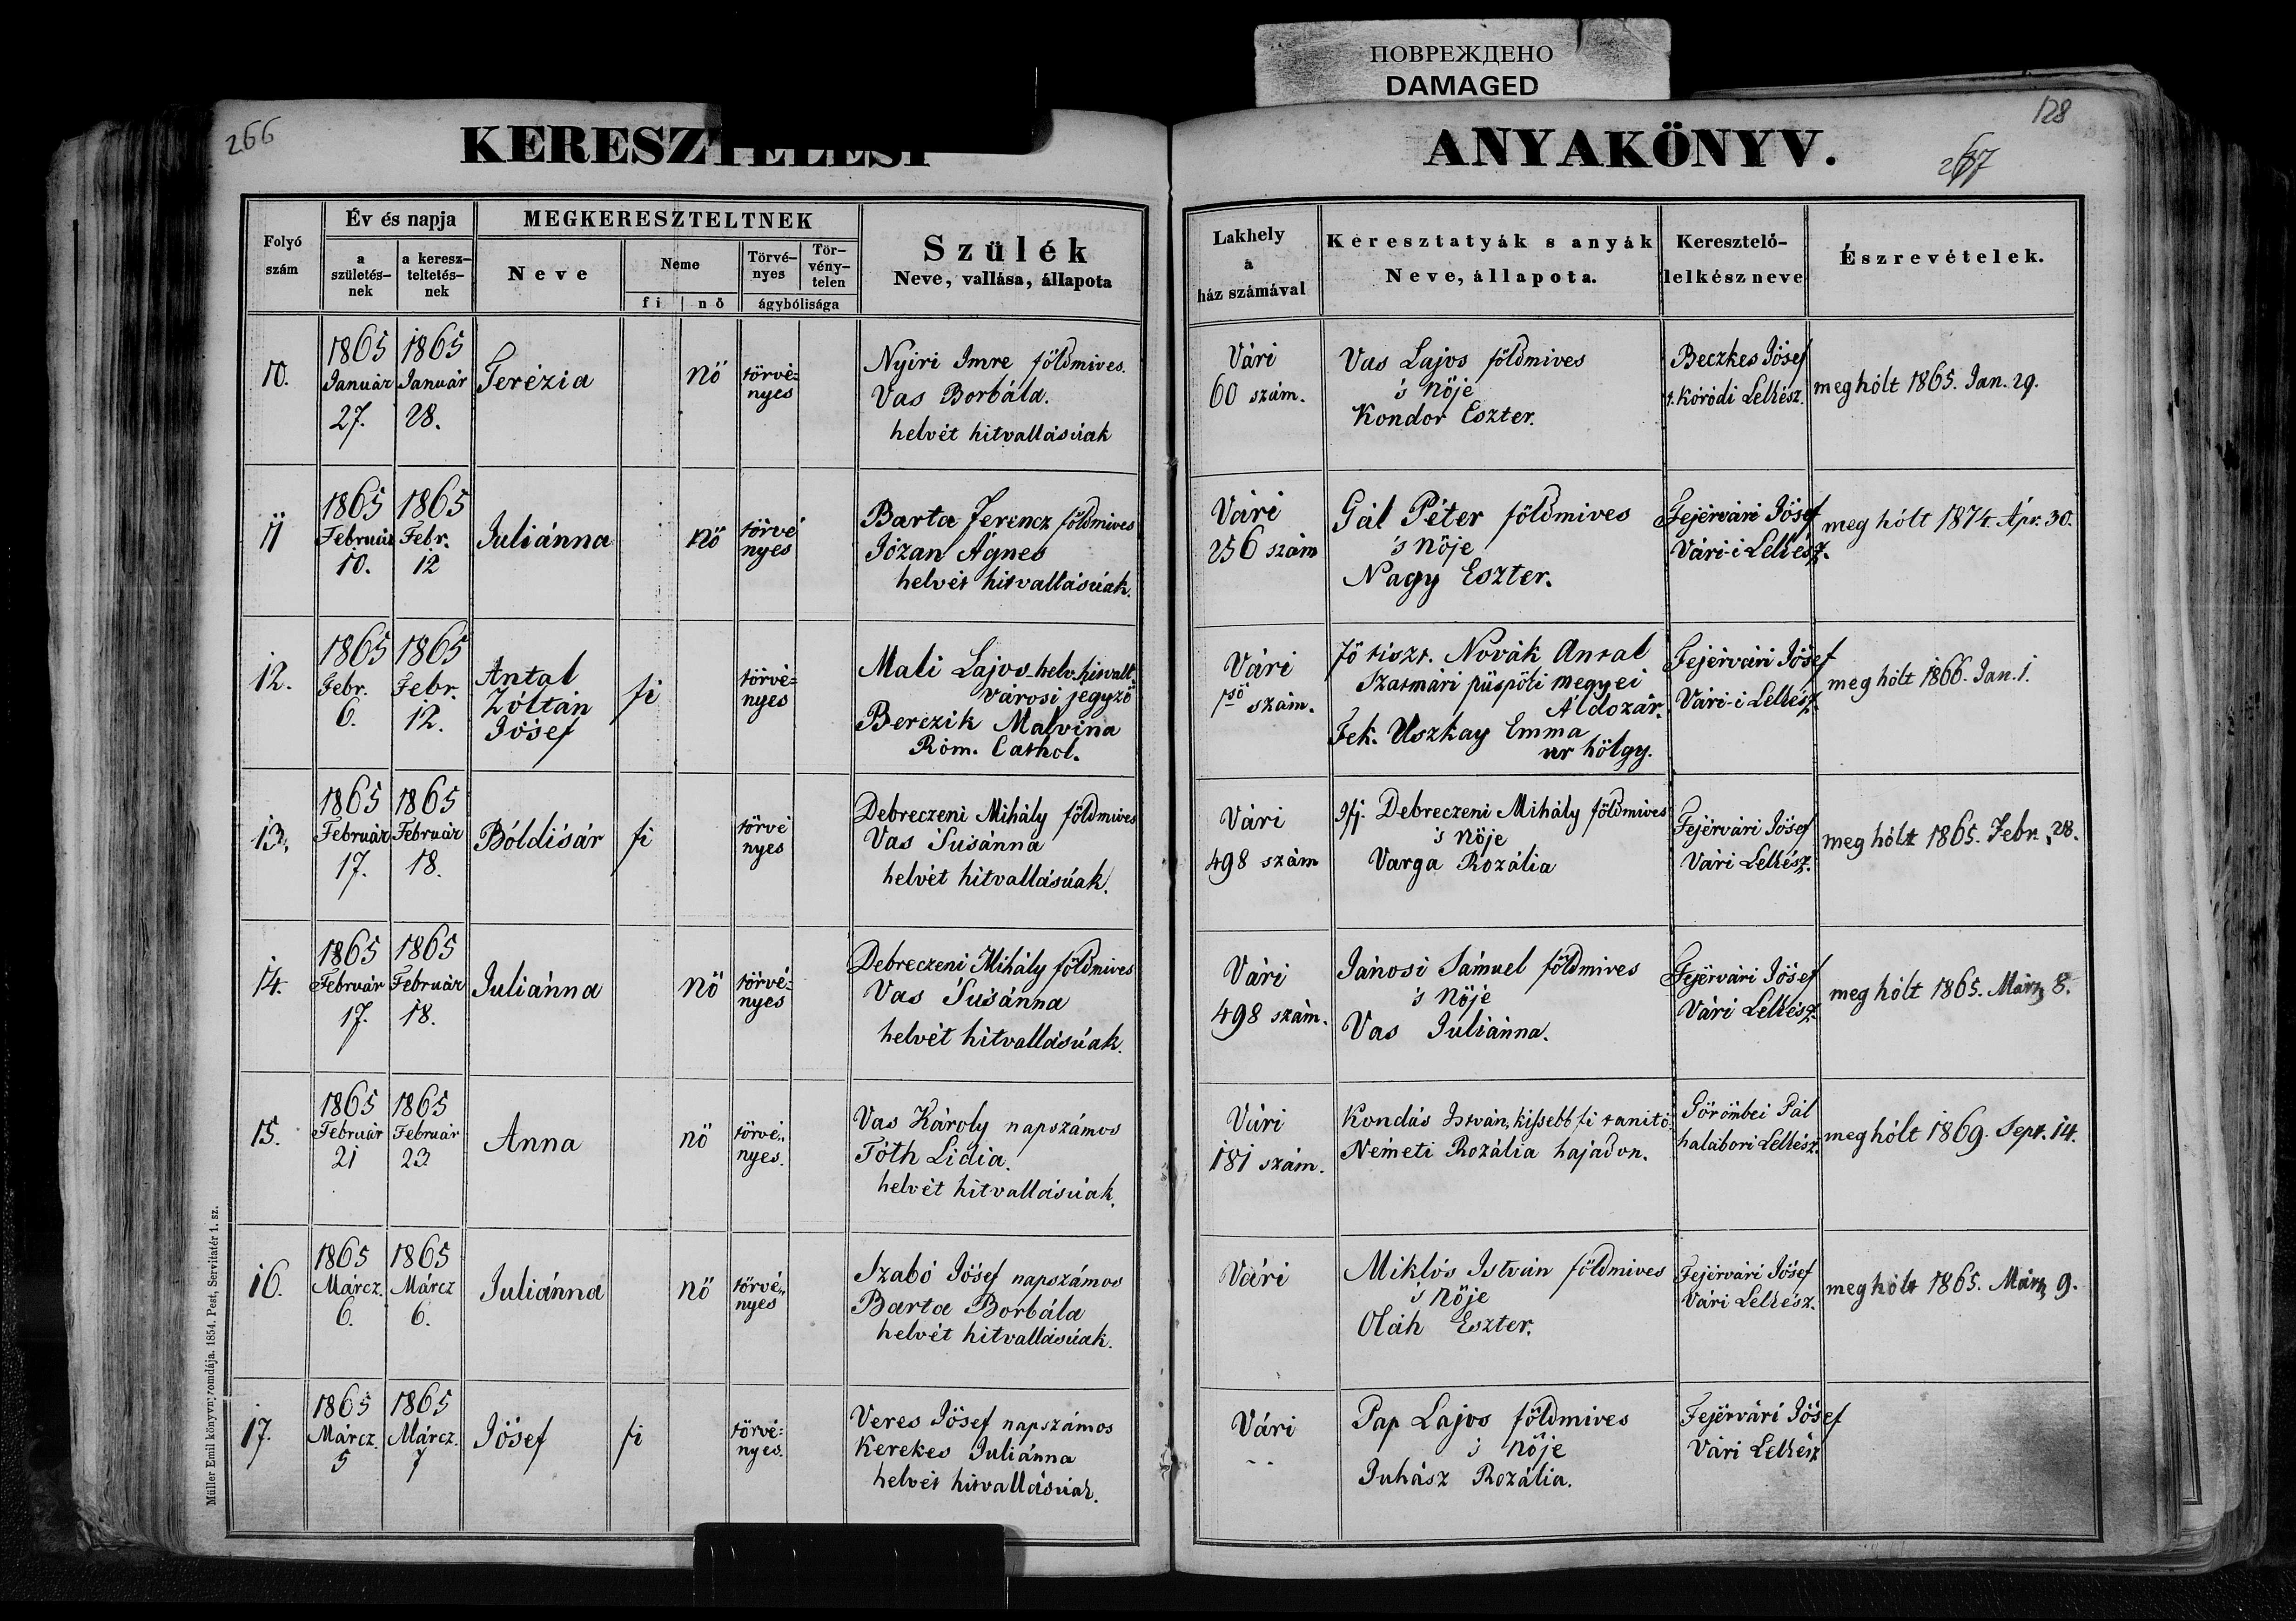 ПОВРЕЖДЕНО
DAMAGED
266
KERESZTELESI
ANYAKÖNYV.
128
267
Folyó szám
Év és napja
a születés-nek
a keresz-teltetés-nek
MEGKERESZTELTNEK
Neve
Neme
fi
nő
Törvé-nyes
Tör-vény-telen
ágybólisága
Szülék
Neve, vallása, állapota
Lakhely
a
ház számával
Keresztatyák s anyák
Neve, állapota.
Keresztelő-
lelkész neve
Észrevételek.
10.
1865 Január 27.
1865 Január 28.
Terézia
nő
törvé=
nyes
Nyiri Imre földmives.
Vas Borbála.
helvét hitvallásúak
Vári
60 szám.
Vas Lajos földmives
's nője
Kondor Eszter.
Beczkes Jósef
t. Kóródi Lelkész.
meghólt 1865. Jan. 29.
11
1865 Február 10.
1865 Febr. 12
Juliánna
nő
törvé
nyes
Barta Ferencz földmives
Józan Ágnes
helvét hitvallásúak.
Vári
256 szám
Gál Péter földmives
's nője
Nagy Eszter.
Fejérvári Jósef
Vári-i Lelkész.
meg hólt 1874. Ápr. 30.
12.
1865 Febr. 6.
1865 Febr. 12.
Antal
Zóltán
Jósef
fi
törvé=
nyes
Mali Lajos helv. hitvall.
városi jegyző
Berczik Malvina
Róm. Cathol.
Vári
1ső szám.
Fő tiszt. Novák Antal
Szatmári püspöki megyei
Áldozár.
Tek. Uszkay Emma
úr hölgy.
Fejérvári Jósef
Vári-i Lelkész.
meg hólt 1866. Jan. 1.
13.
1865 Február 17.
1865 Február 18.
Bóldisár
fi
törvé
nyes
Debreczeni Mihály földmives
Vas Susánna
helvét hitvallásúak.
Vári
498 szám
Ifj. Debreczeni Mihály földmives
's nője
Varga Rozália
Fejérvári Jósef
Vári Lelkész.
meg hólt 1865. Febr. 28.
14.
1865 Február 17.
1865 Február 18.
Juliánna
nő
törvé=
nyes
Debreczeni Mihály földmives
Vas Susánna
helvét hitvallásúak.
Vári
498 szám.
Jánosi Sámuel földmives
's nője
Vas Juliánna.
Fejérvári Jósef
Vári Lelkész.
meg hólt 1865. Márz 8.
15.
1865 Február 21
1865 Február 23
Anna
nő
törvé„
nyes.
Vas Károly napszámos
Tóth Lidia.
helvét hitvallásúak.
Vári
181 szám.
Kondás István, kissebb fi tanító.
Németi Rozália hajadon.
Pál
halábori Lelkész.
meg hólt 1869. Sept. 14.
16.
1865 Márcz. 6.
1865 Márcz 6.
Juliánna
nő
törvé„
nyes
Szabó Jósef napszámos
Barta Borbála
helvét hitvallásúak.
Vári
Miklós István földmives
's nője
Oláh Eszter.
Fejérvári Jósef
Vári Lelkész.
meg hólt 1865. Márz 9.
17.
1865 Márcz. 5
1865 Márcz. 7
Jósef
fi
törvé=
nyes.
Veres Jósef napszámos
Kerekes Juliánna
helvét hitvallásúak.
Vári
Pap Lajos földmives
's nője
Juhász Rozália.
Fejérvári Jósef
Vári Lelkész
Müller Emil könyvnyomdája. 1854. Pest, Servitatér 1. sz.